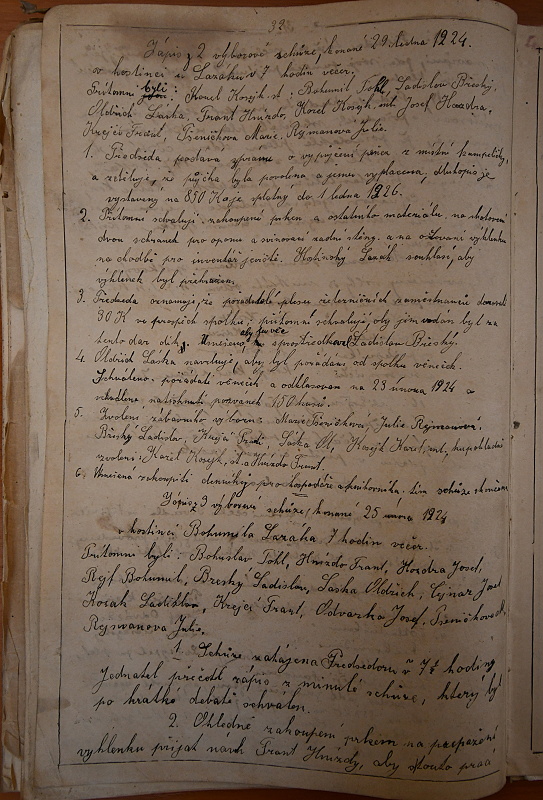 33.
Zápis z 2 výborové schůze, konané 29. ledna 1924.
v hostinci u Lazáka v 7 hodin večer.
Přítomni byli: Karel Kozjk st. Bohumil Pohl, Ladislav Břeský,
Oldřich Laška, Frant Hnízdo, Karel Kozjk ml. Josef Hozdra,
Krejčí Frant, Pšeničkova Marie, Rejmanova Julie.
1. Předseda podává zprávu o vypůjčení peněz z místní kampeličky,
a zděluje, že půjčka byla povolena a jemu vyplacena, dlužopis je
vystavený na 850 K a je splatný do 1 ledna 1926.
2. Přítomni schvalují zakoupení prken a ostatního materiálu na zhotovení
dvou schránek pro oponu a svinovací zadní stěny. a na
na chodbě pro inventář jeviště. Hostinský Lazák souhlasí, aby
výklenek byl přehrazen.
3. Předseda oznamuje, že pořadatelé plesu železničních zaměstnanců
30 K ve prospěch spolku; přítomní schvalují, aby jim vzdán byl za
tento dar dík, Ladislav Břeský.
4. Oldřich Laška navrhuje, aby byl pořádán od spolku věneček.
Schváleno pořádati věneček a odhlasován na 23 února 1924 a
natisknutí pozvánek 150 kusů.
5. Zvolení zábavního výboru: Marie Pšeničková, Julie Rejmanová,
Břeský Ladislav, Krejčí Frant, Laška Ol, Kozjk Karel, ml, ku pokladně
zvoleni: Karel Kozjk, st. a Hnízdo Frant.
6. Usnešeno zakoupiti deníky pro hospodáře a knihovníka. tím schůze skončena
Zápis z 3 výborové schůze, konané 25 února 1924
v hostinci Bohumila Lazáka 7 hodin večer.
Přítomni byli: Bohuslav Pohl, Hnízdo Frant, Hozdra Josef,
Rejf Bohumil, Breský Ladislav, Laška Oldřich, Josef
Ladislav, Krejčí Frant, Odvazka Josef, Pšeničkova M.
Rejmanova Julie.
1. Schůze zahájena Předsedou v 7½ hodiny
Jednatel přečetl zápis z minulé schůze, který byl
po krátké debatě schválen.
2. Ohledně zakoupení prken na přepažení
vyhlenku přijat návrh Frant Hnízdy, aby touto prací